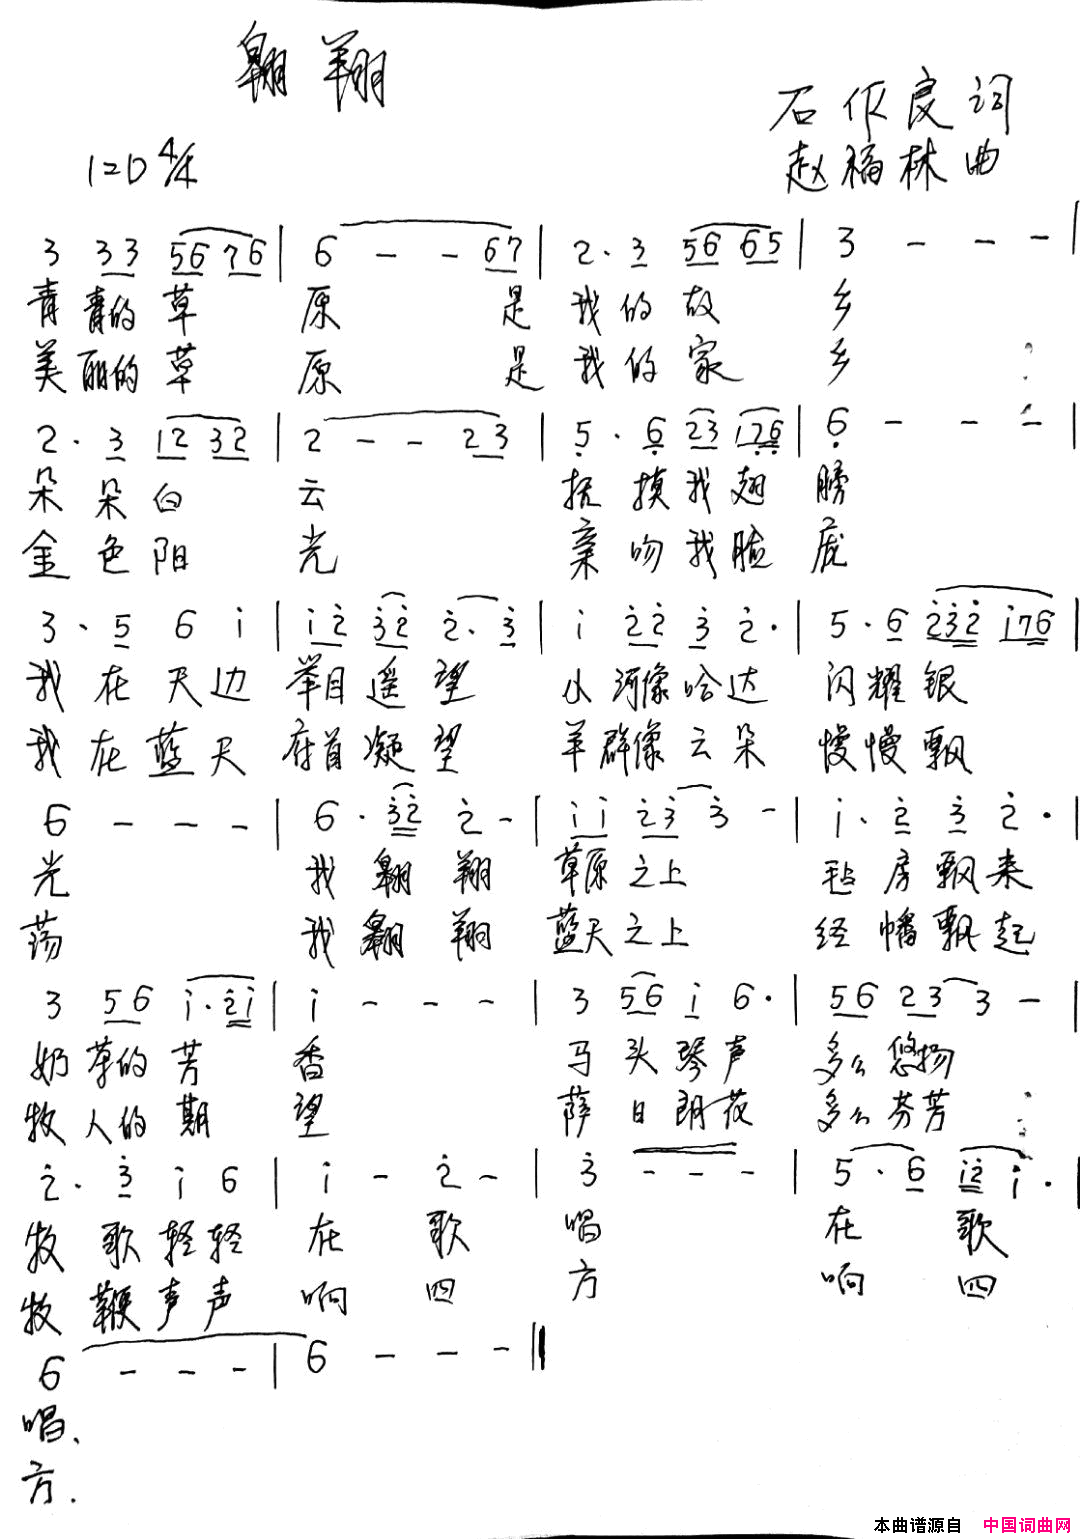 翱翔
石作良词
1=D 4/4 赵福林曲
3 33 56 76 | 6 - - 67 | 2· 3 56 65 | 3 - - - |
青青的草原是我的故乡
美丽的草原是我的家乡
2· 3 12 32 | 2 - - 23 | 5· 6 23 176 | 6 - - - |
朵朵白云抚摸我翅膀
金色阳光亲吻我脸庞
3· 5 6 i | i2 32 2· 3 | i 22 3 2· | 5· 6 232 i76 |
我在天边举目遥望小河像哈达闪耀银
我在蓝天府首凝望羊群像云朵慢慢飘
6 - - - | 6· 32 2 - | ii 23 3 - | i· 2 3 2· |
光我翱翔草原之上毡房飘来
荡我翱翔蓝天之上经幡飘起
3 56 i·2i | i - - - | 3 56 i 6· | 56 23 3 - |
奶茶的芳香马头琴声多么悠扬
牧人的期望萨日朗花多么芬芳
2· 3 i 6 | i - 2 - | 3 - - - | 5· 6 i2 i· |
牧歌轻轻在歌唱在歌
牧鞭声声响四方响四
6 - - - | 6 - - - ||
唱、
方.
本曲谱源自 中国词曲网